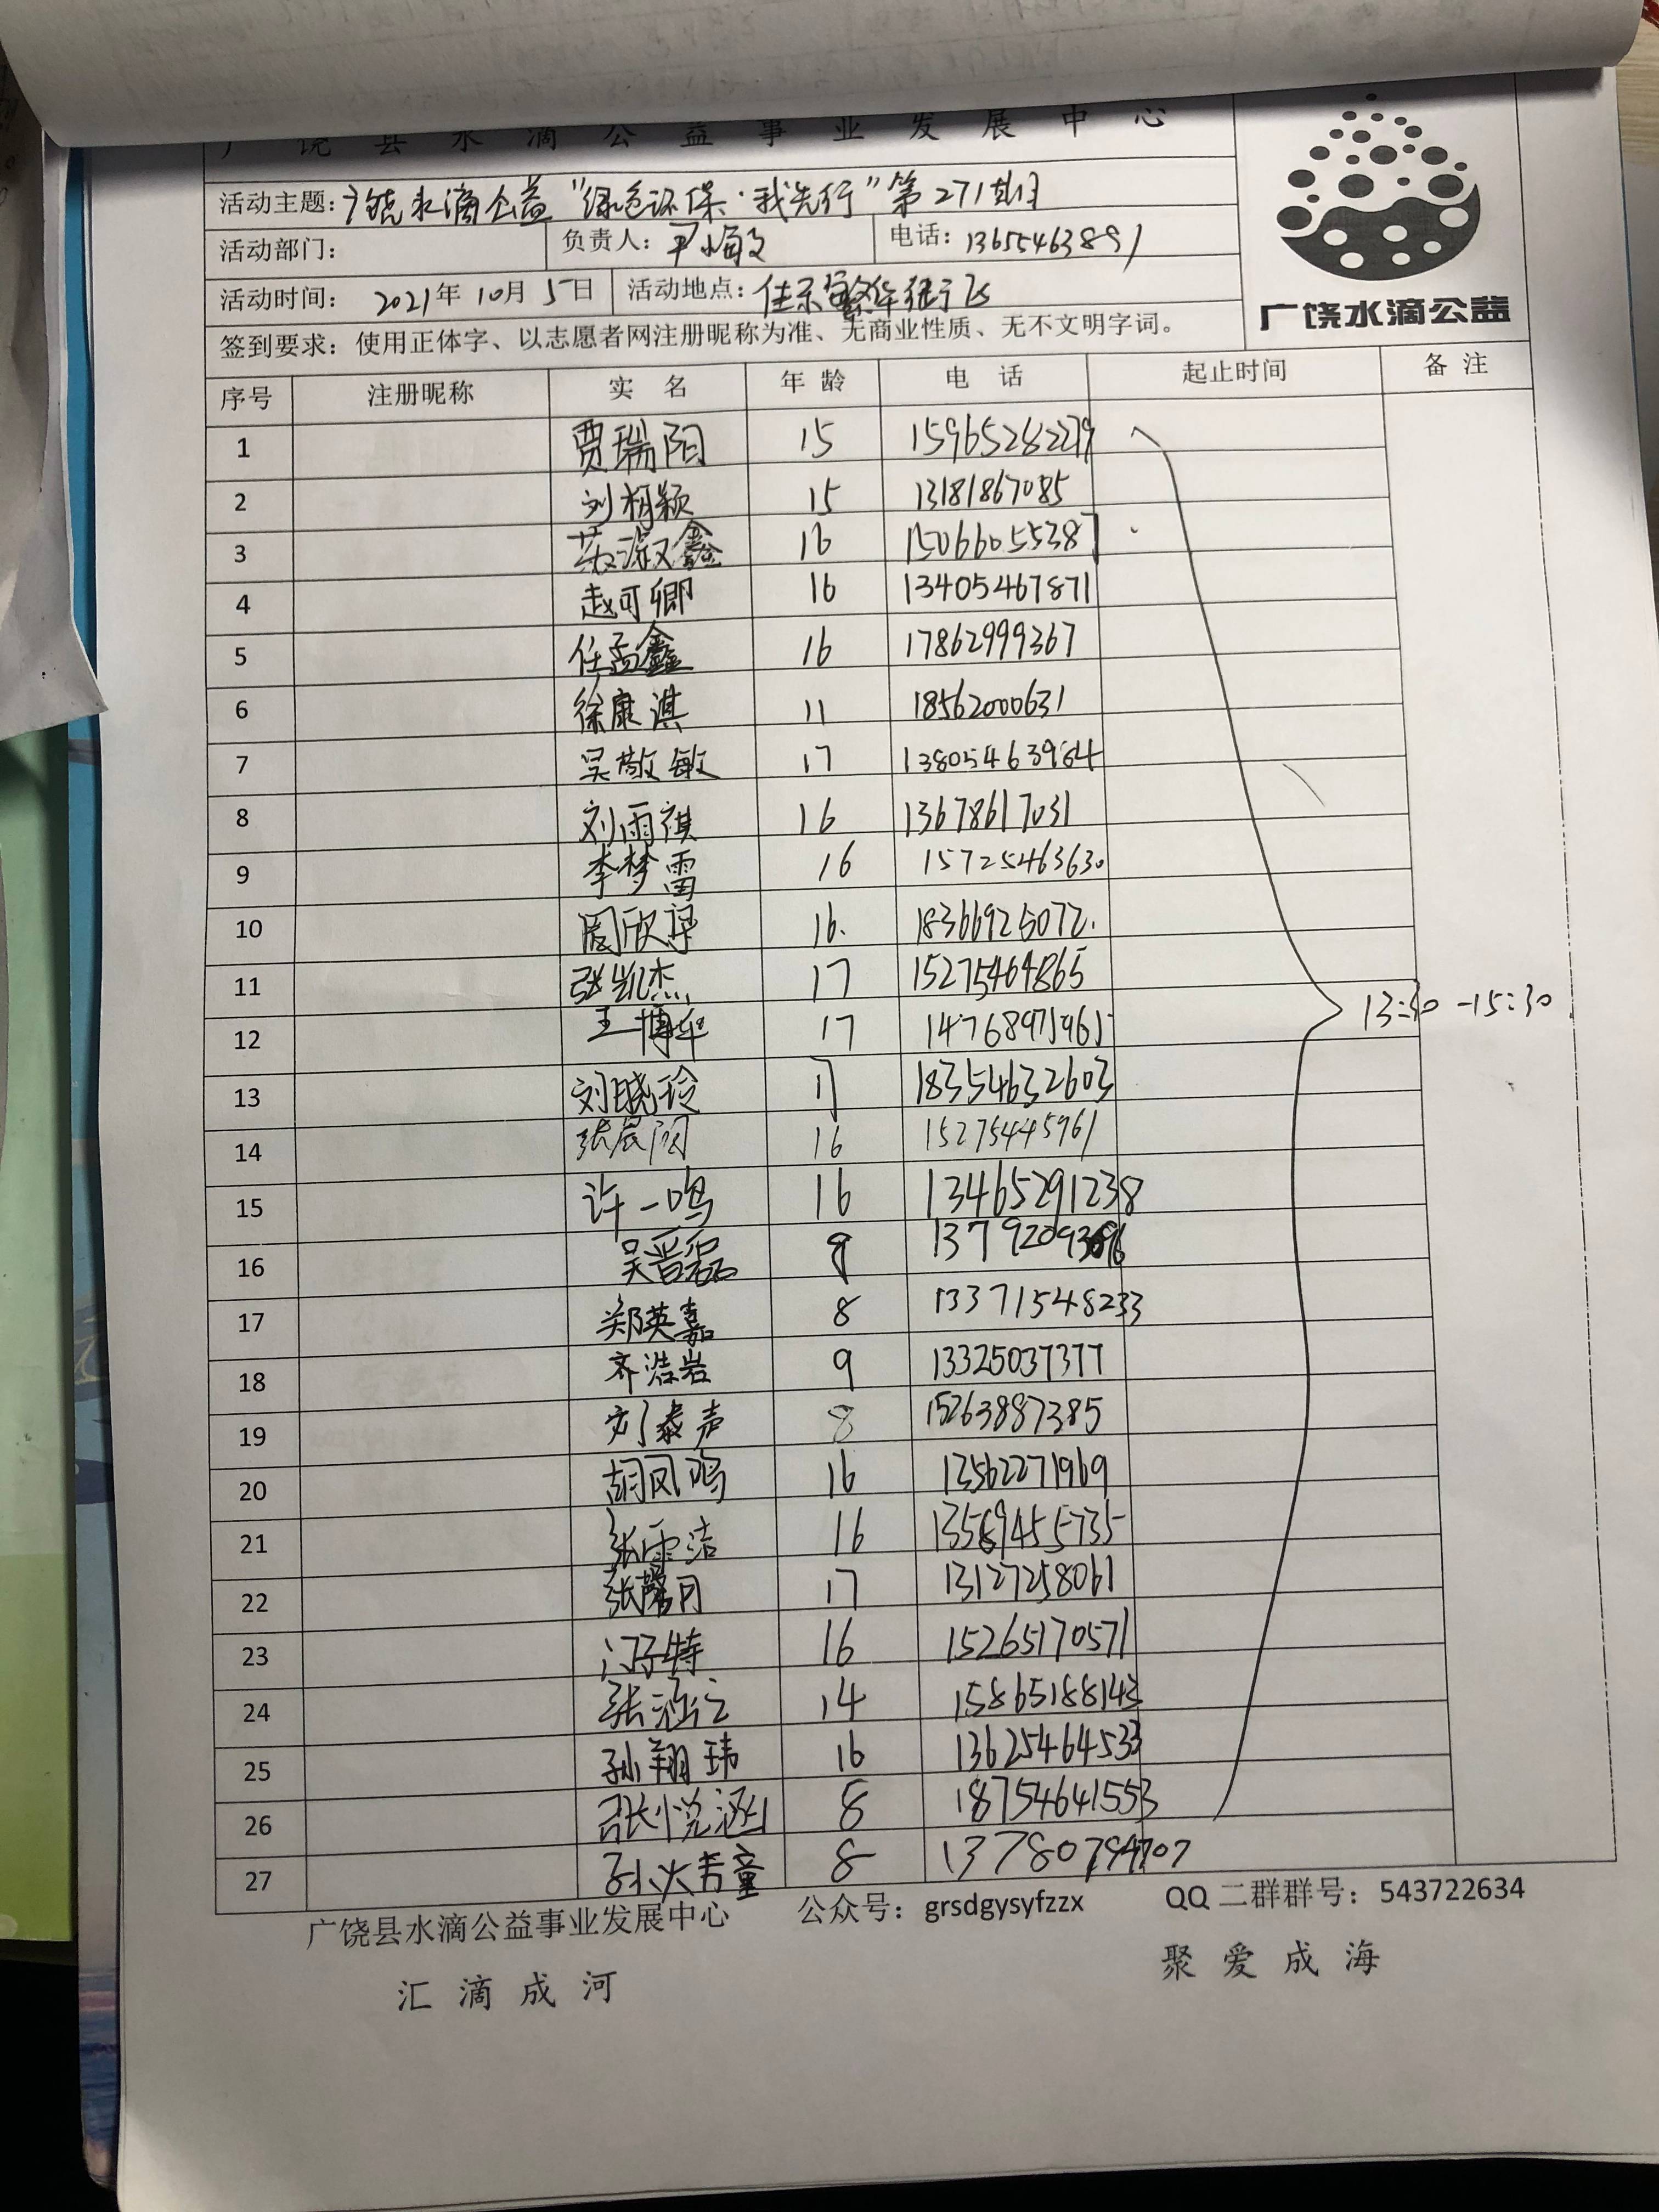 广饶县水滴公益事业发展中心
活动主题：广饶水滴公益“绿色环保·我先行”第271期
活动部门： 负责人： 电话：13655463891
活动时间：2021年10月5日 活动地点：
签到要求：使用正体字、以志愿者网注册昵称为准、无商业性质、无不文明字词。
广饶水滴公益
序号 注册昵称 实名 年龄 电话 起止时间 备注
1 贾瑞阳 15 15965282279
2 刘栩颖 15 13181867085
3 16 15066055387
4 赵可卿 16 13405467871
5 任孟鑫 16 17862999367
6 徐康淇 11 18562000631
7 吴敬敏 17 13805463964
8 刘雨祺 16 13678617031
9 李梦雪 16 15725463630
10 周欣 16. 18366925072.
11 张凯杰 17 15275464865
12 王博华 17 14768971961
13:30-15:30
13 刘晓玲 17 18354632603
14 张晨阳 16 15275445961
15 许一鸣 16 13465291238
16 吴晋磊 9
17 郑英嘉 8 13371548233
18 齐浩岩 9 13325037377
19 刘泰声 8 15263887385
20 胡凤鸣 16 13562271969
21 张雨洁 16 13569455735
22 张馨月 17 13127258061
23 门子特 16 15265170571
24 张涵之 14 15865188143
25 孙翔玮 16 13625464533
26 张悦涵 8 18754641553
27 8 13780794707
广饶县水滴公益事业发展中心 公众号：grsdgysyfzzx QQ二群群号：543722634
汇滴成河 聚爱成海